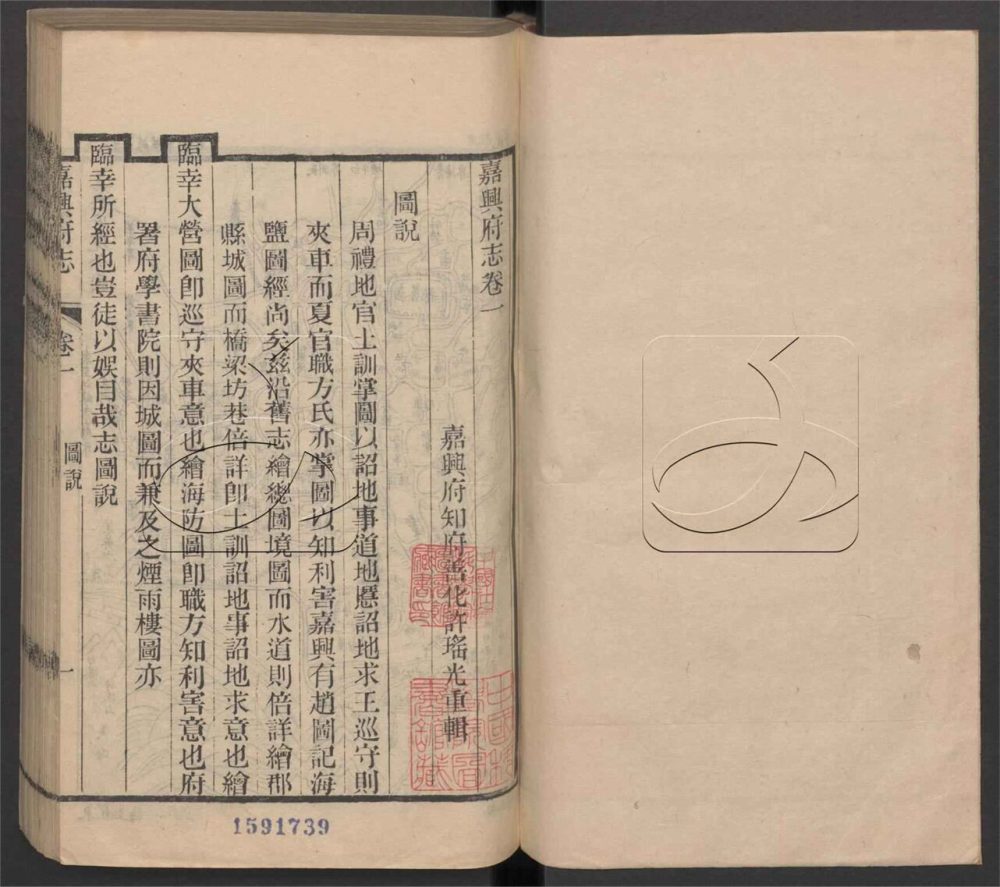 嘉興府志卷一
嘉興府知府善化許瑤光重輯
圖說
周禮地官土訓掌圖以詔地事道地慝詔地求王巡守則
夾車而夏官職方氏亦掌圖以知利害嘉興有趙圖記海
鹽圖經尚矣茲沿舊志繪總圖境圖而水道則倍詳繪郡
縣城圖而橋梁坊巷倍詳卽土訓詔地事詔地求意也繪
臨幸大營圖卽巡守夾車意也繪海防圖卽職方知利害意也府
署府學書院則因城圖而兼及之煙雨樓圖亦
臨幸所經也豈徒以娛目哉志圖說
嘉興府志 卷一 圖說 一
1591739